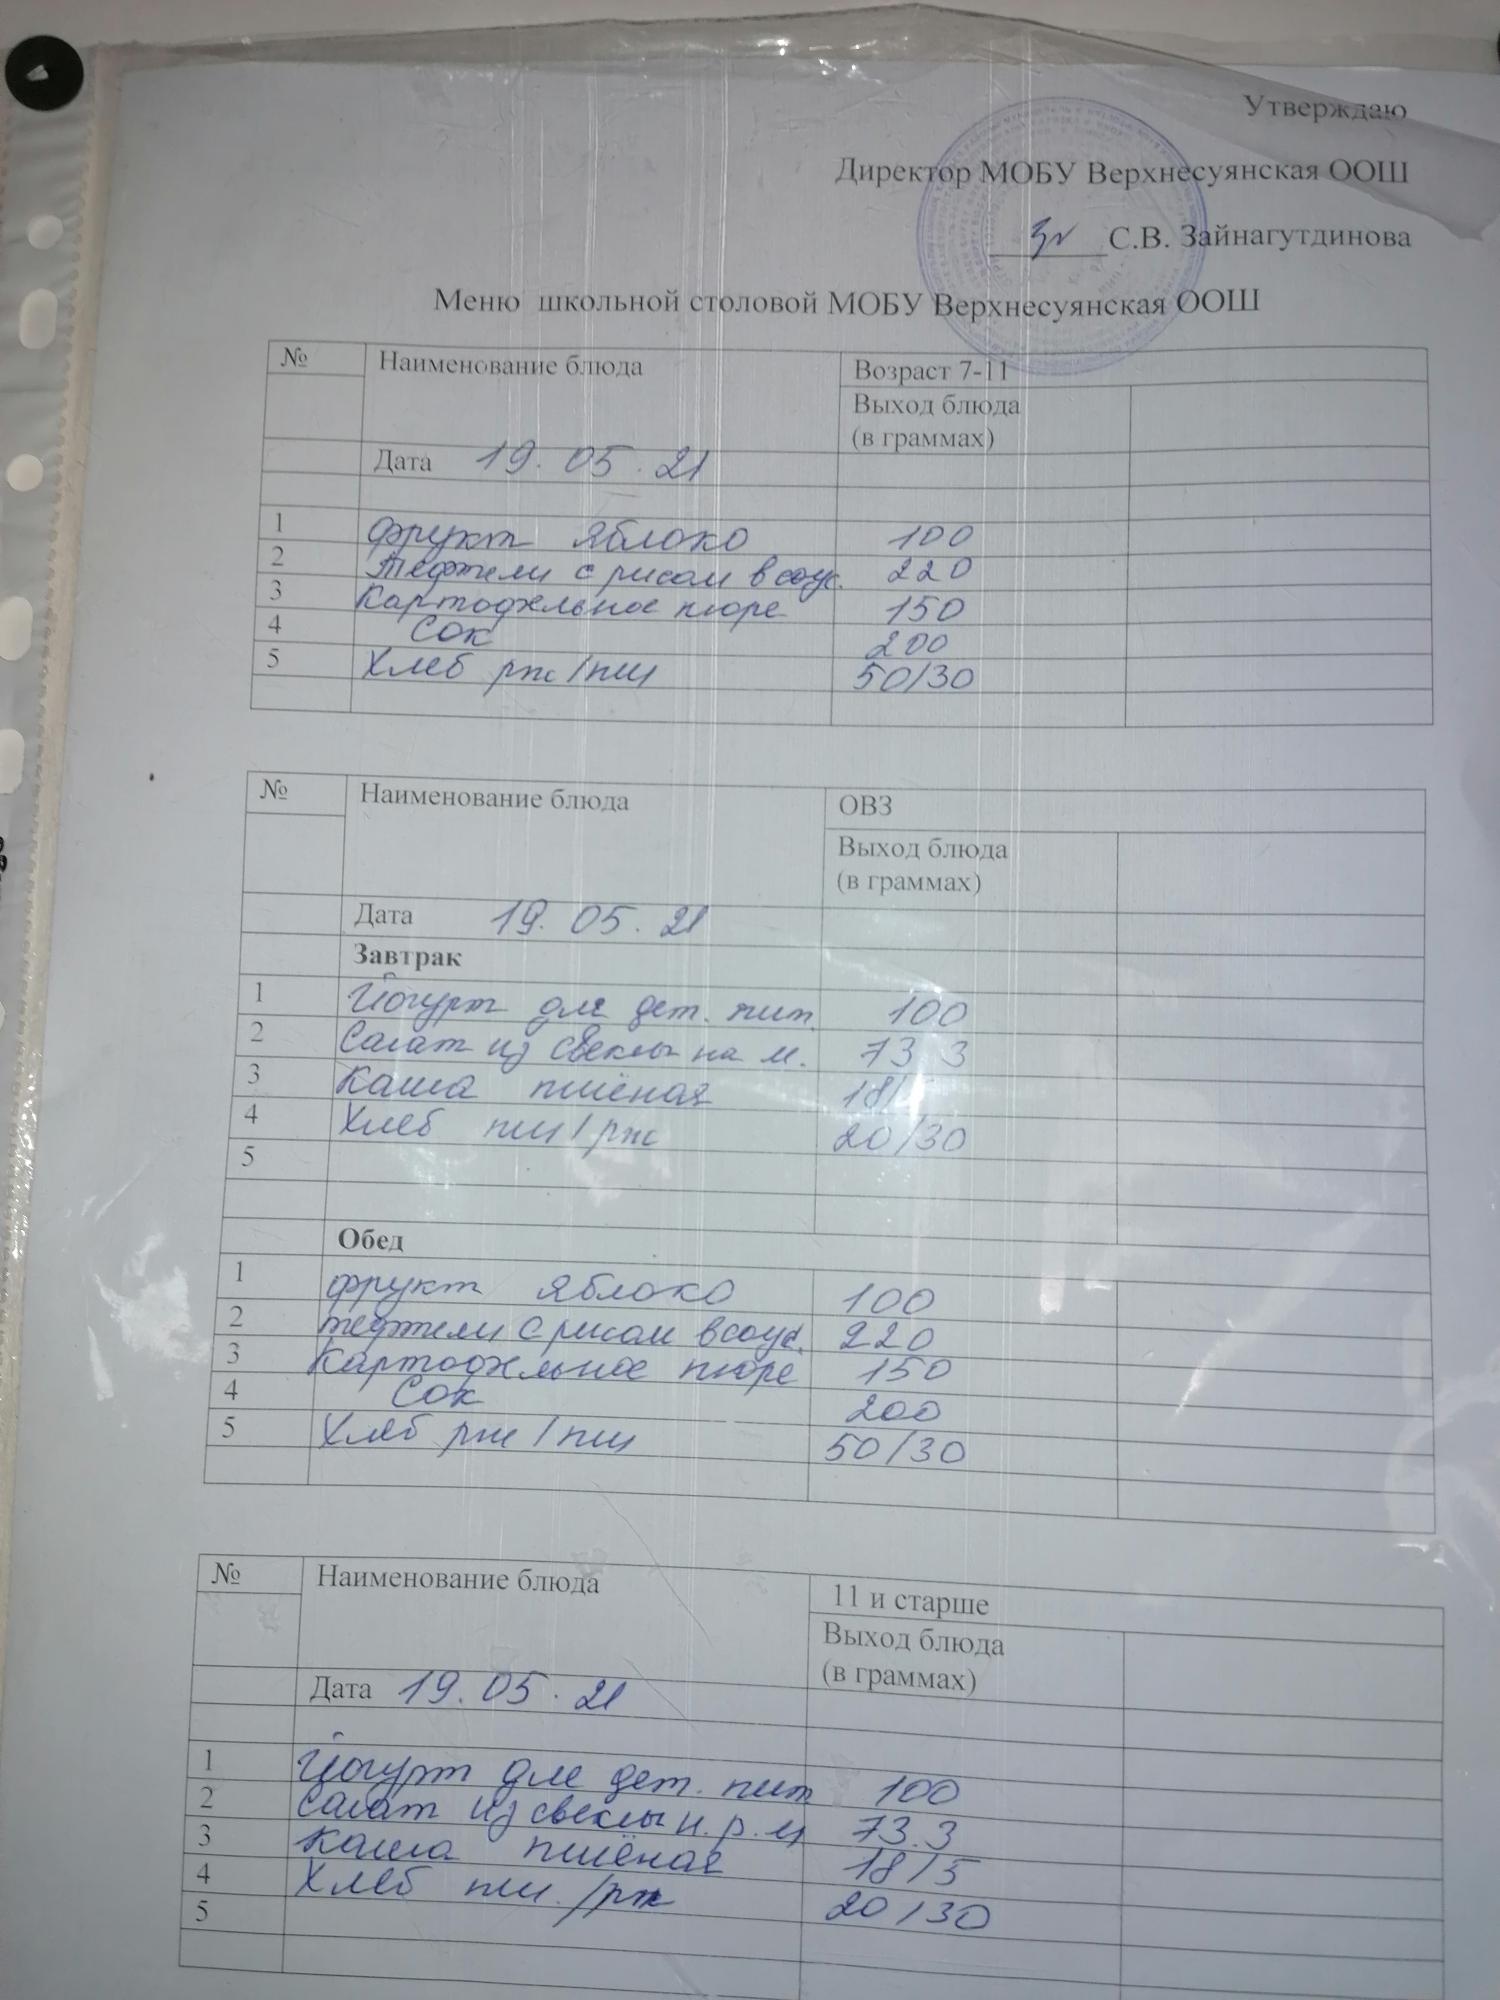 Утверждаю
Директор МОБУ Верхнесуянская ООШ
С.В. Зайнагутдинова
Меню школьной столовой МОБУ Верхнесуянская ООШ
№ Наименование блюда Возраст 7-11
Выход блюда
(в граммах)
Дата 19.05.21
1 фрукт яблоко 100
2 Тефтели с рисом в соус. 220
3 Картофельное пюре 150
4 Сок 200
5 Хлеб рж/пш 50/30
№ Наименование блюда ОВЗ
Выход блюда
(в граммах)
Дата 19.05.21
Завтрак
1 Йогурт для дет. пит. 100
2 Салат из свеклы на м. 73.3
3 Каша пшёная 18/5
4 Хлеб пш/рж 20/30
5
Обед
1 фрукт яблоко 100
2 тефтели с рисом в соус. 220
3 Картофельное пюре 150
4 Сок 200
5 Хлеб рж/пш 50/30
№ Наименование блюда 11 и старше
Выход блюда
(в граммах)
Дата 19.05.21
1 Йогурт для дет. пит 100
2 Салат из свеклы н.р.м 73.3
3 Каша пшёная 18/5
4 Хлеб пш./рж 20/30
5